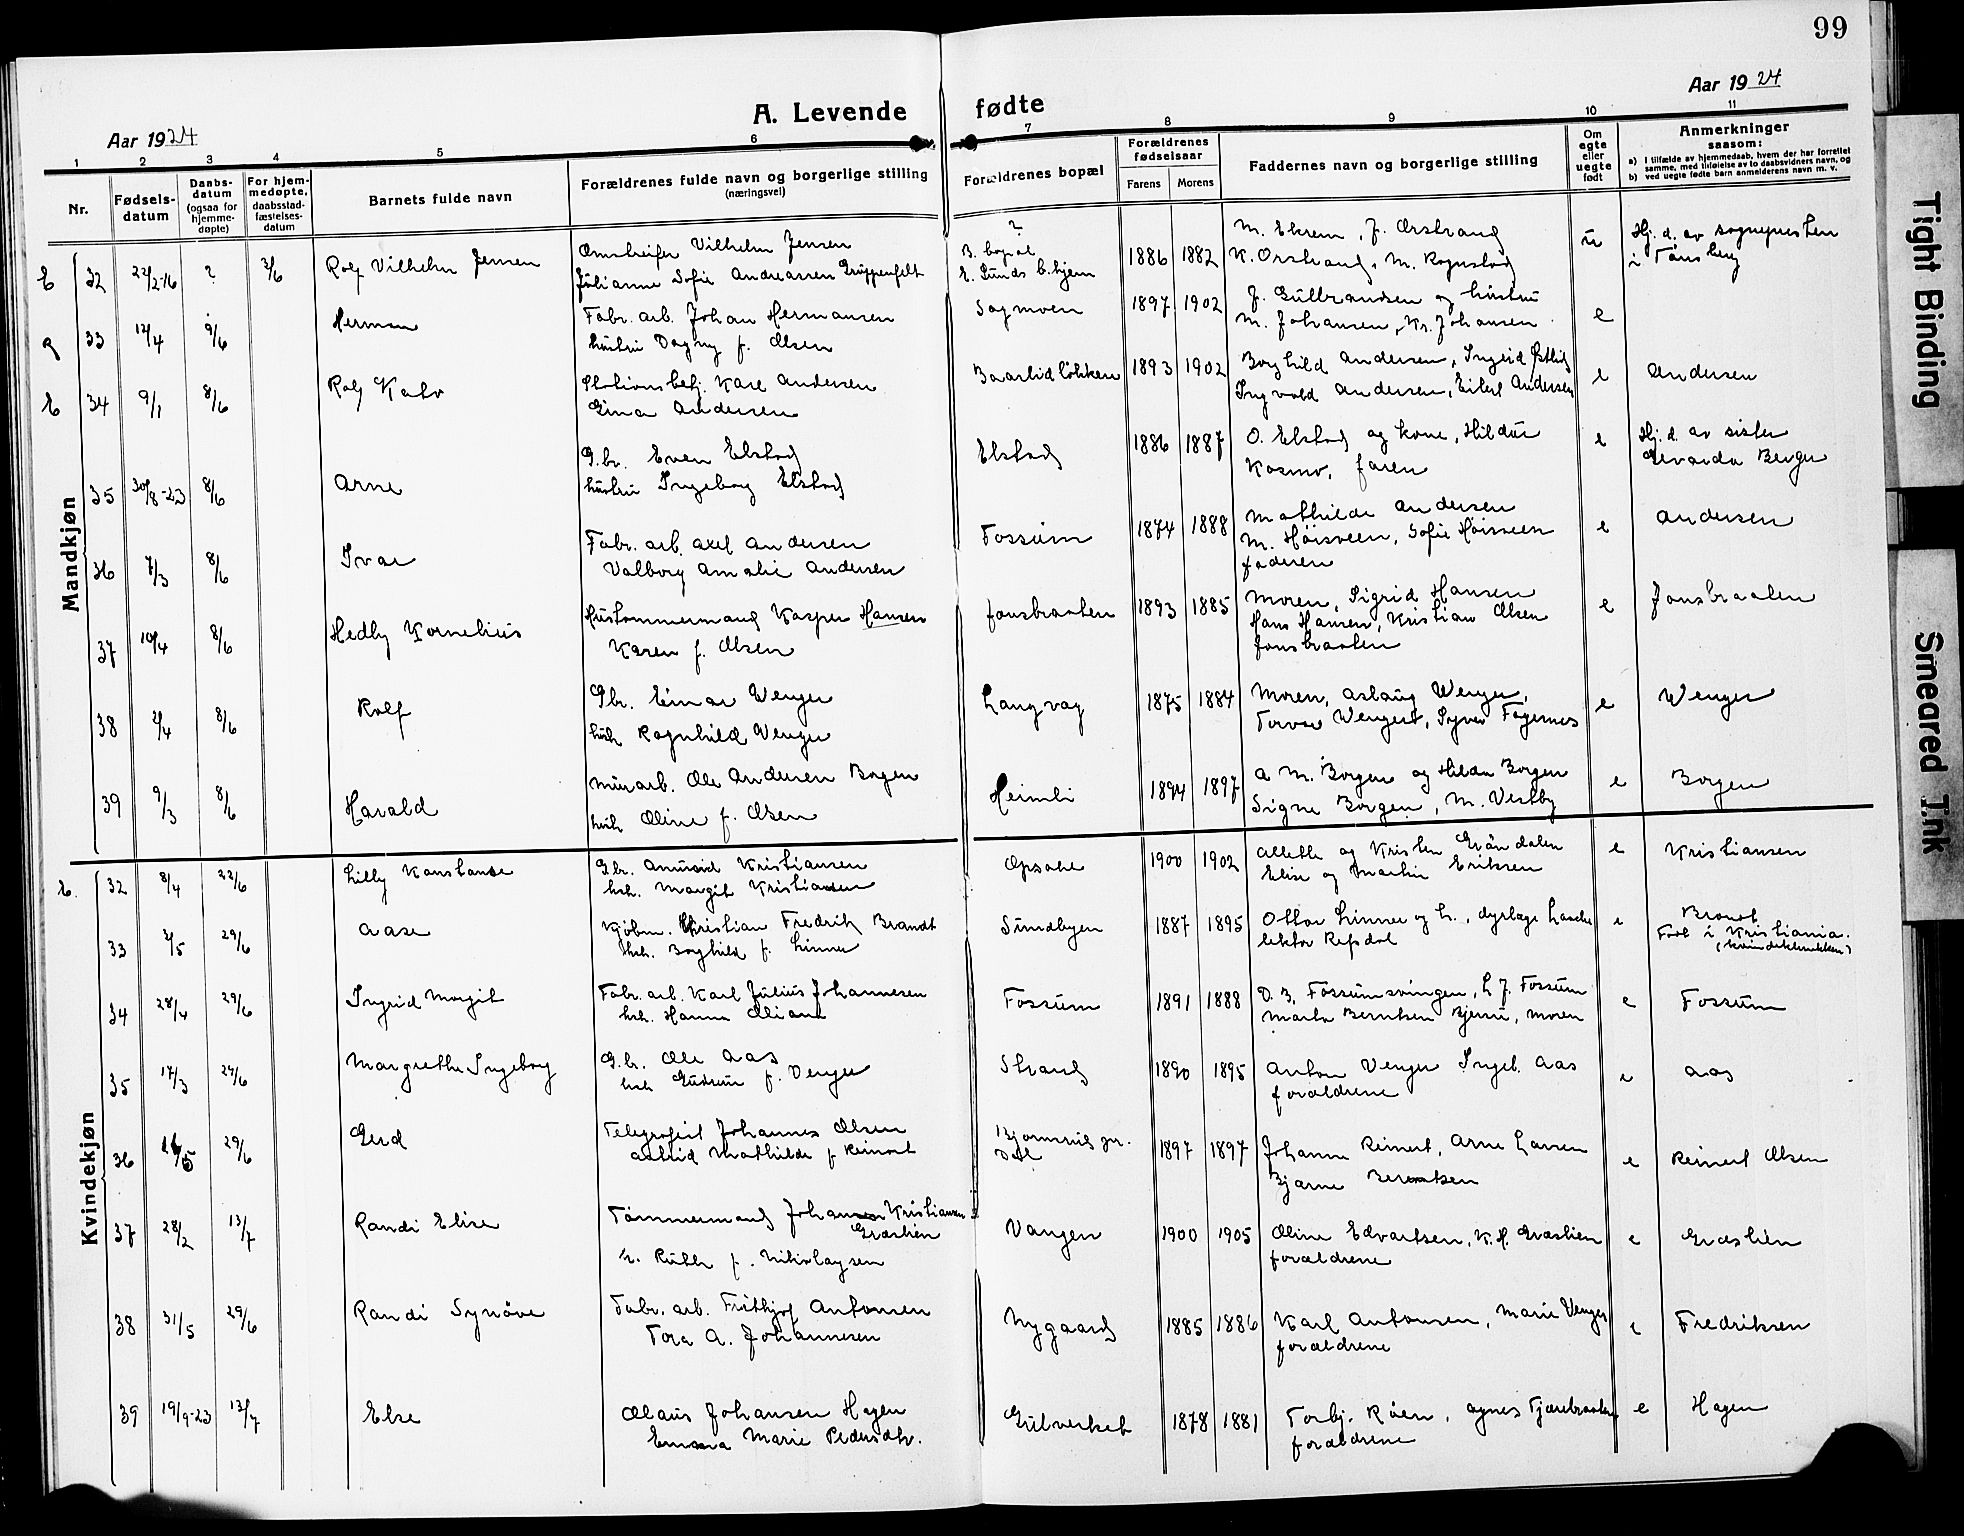 99
Aar 1924
A. Levende fødte
Aar 1924
1 2 3 4 5 6 7 8 9 10 11
Nr.
Fødsels-
datum
Daabs-
datum
(ogsaa for
hjemme-
døpte)
For hjem-
medøpte.
daabsstad-
fæstelses-
datum
Barnets fulde navn
Forældrenes fulde navn og borgerlige stilling
(næringsvei)
Forældrenes bopæl
Forældrenes
fødselsaar
Farens Morens
Faddernes navn og borgerlige stilling
Om
egte
eller
uegte
født
Anmerkninger
saasom:
a) I tilfælde av hjemmedaab, hvem der har forrettet
samme, med tilføielse av to daabsvidners navn, og
b) ved uegte fødte barn anmelderens navn m. v.
Mandkjøn
32 22/2-16 ? 3/6 Rolf Vilhelm Jensen
Omstreifer Vilhelm Jensen
Julianne Sofie Andreasen Gruppenfelt
?
B. bopæl
E. Sunds b.hjem
1886 1882
M. Ekrem, J. Ørstrand
K. Ørstrand, M. Rognstad
u
Hj. d. av sognepresten
i Tønsberg
33 12/4 9/6 Herman
Fabr. arb. Johan Hermansen
hustru Dagny f. Olsen
Sagmoen 1897 1902
J. Gulbrandsen og hustru
M. Johansen, Kr. Johansen
e
34 9/1 8/6 Rolf Kato
Stationsbetj. Karl Andersen
Gina Andersen
Baastadløkken 1893 1902
Borghild Andersen, Ingrid Østlid
Ingvald Andersen, Eilert Andersen
e Andersen
35 30/8-23 8/6 Arne
G.br. Even Elstad
hustru Ingeborg Elstad
Elstad 1886 1887
O. Elstad og kone, Hildur
Kosmo, faren
e
Hj. d. av sister
Gevarda Berger
36 7/3 8/6 Ivar
Fabr. arb. Axel Andersen
Valborg Amalie Andersen
Fossum 1874 1888
Mathilde Andersen
M. Høisveen, Sofie Høisveen
faderen
e Andersen
37 10/4 8/6 Hedly Kornelius
Hustømmermand Kasper Hansen
Karen f. Olsen
Jonsbraaten 1893 1885
Moren, Sigrid Hansen
Hans Hansen, Kristian Olsen
Jonsbraaten
e Jonsbraaten
38 2/4 8/6 Rolf
Gbr. Einar Wenger
hustr Ragnhild Wenger
Langvag 1875 1884
Moren, Aslaug Wenger,
Torvar Wenger, Syver Fagernes
e Wenger
39 9/3 8/6 Harald
Murarb. Ole Andersen Borgen
hustr Oline f. Olsen
Heimli 1894 1897
A M. Borgen og Hilda Borgen
Signe Borgen, M. Vestby
e Borgen
Kvindekjøn
32 8/4 22/6 Lilly Konstanse
G.br. Amund Kristiansen
hstr. Margit Kristiansen
Opsahl 1900 1902
Alette og Kristen Grøndalen
Elise og Martin Eriksen
e Kristiansen
33 2/5 29/6 Aase
Kjøbm. Christian Fredrik Brandt
hstr. Borghild f. Linner
Sundbyen 1887 1895
Ottar Linner og h., dyrlæge Laache
lektor Refsdal
e
Brandt
Født i Kristiania.
(kvindeklinikken)
34 28/4 29/6 Ingrid Margit
Fabr. arb. Karl Julius Johannesen
hstr. Hanna Oliana
Fossum 1891 1888
D. B. Fossumsvingen, L J. Fossum
Marta Berntsen Bjerru, moren
e Fossum
35 17/3 29/6 Margrethe Ingeborg
G.br. Ole Aas
hstr Gudrun f. Venger
Strand 1890 1895
Anton Venger Ingeb. Aas
forældrene
e Aas
36 16/5 29/6 Gerd
Telegrafist Johannes Olsen
Astrid Mathilde f Reinert
Bjørnhus pr.
Dal
1897 1897
Johanne Reinert, Arne Larsen
Bjarne Berentsen
e Reinert Olsen
37 28/2 13/7 Randi Elise
Tømmermand Johan Kristiansen
Græslien
h. Ruth f. Nikolaysen
Vangen 1900 1905
Oline Edvartsen, K. H. Græslien
forældrene
e Græslien
38 31/5 29/6 Randi Synøve
Fabr. arb. Fritjof Antonsen
Tora A. Johannesen
Nygaard 1885 1886
Karl Antonsen, Marie Venger
forældrene
e Fredriksen
39 19/9-23 13/7 Else
Olaus Johansen Hagen
Emma Marie Pedersdtr.
Gulverket 1878 1881
Torbj. Røen, Agnes Tjærebraaten
forældrene
e Hagen
Tight Binding
Smeared Ink